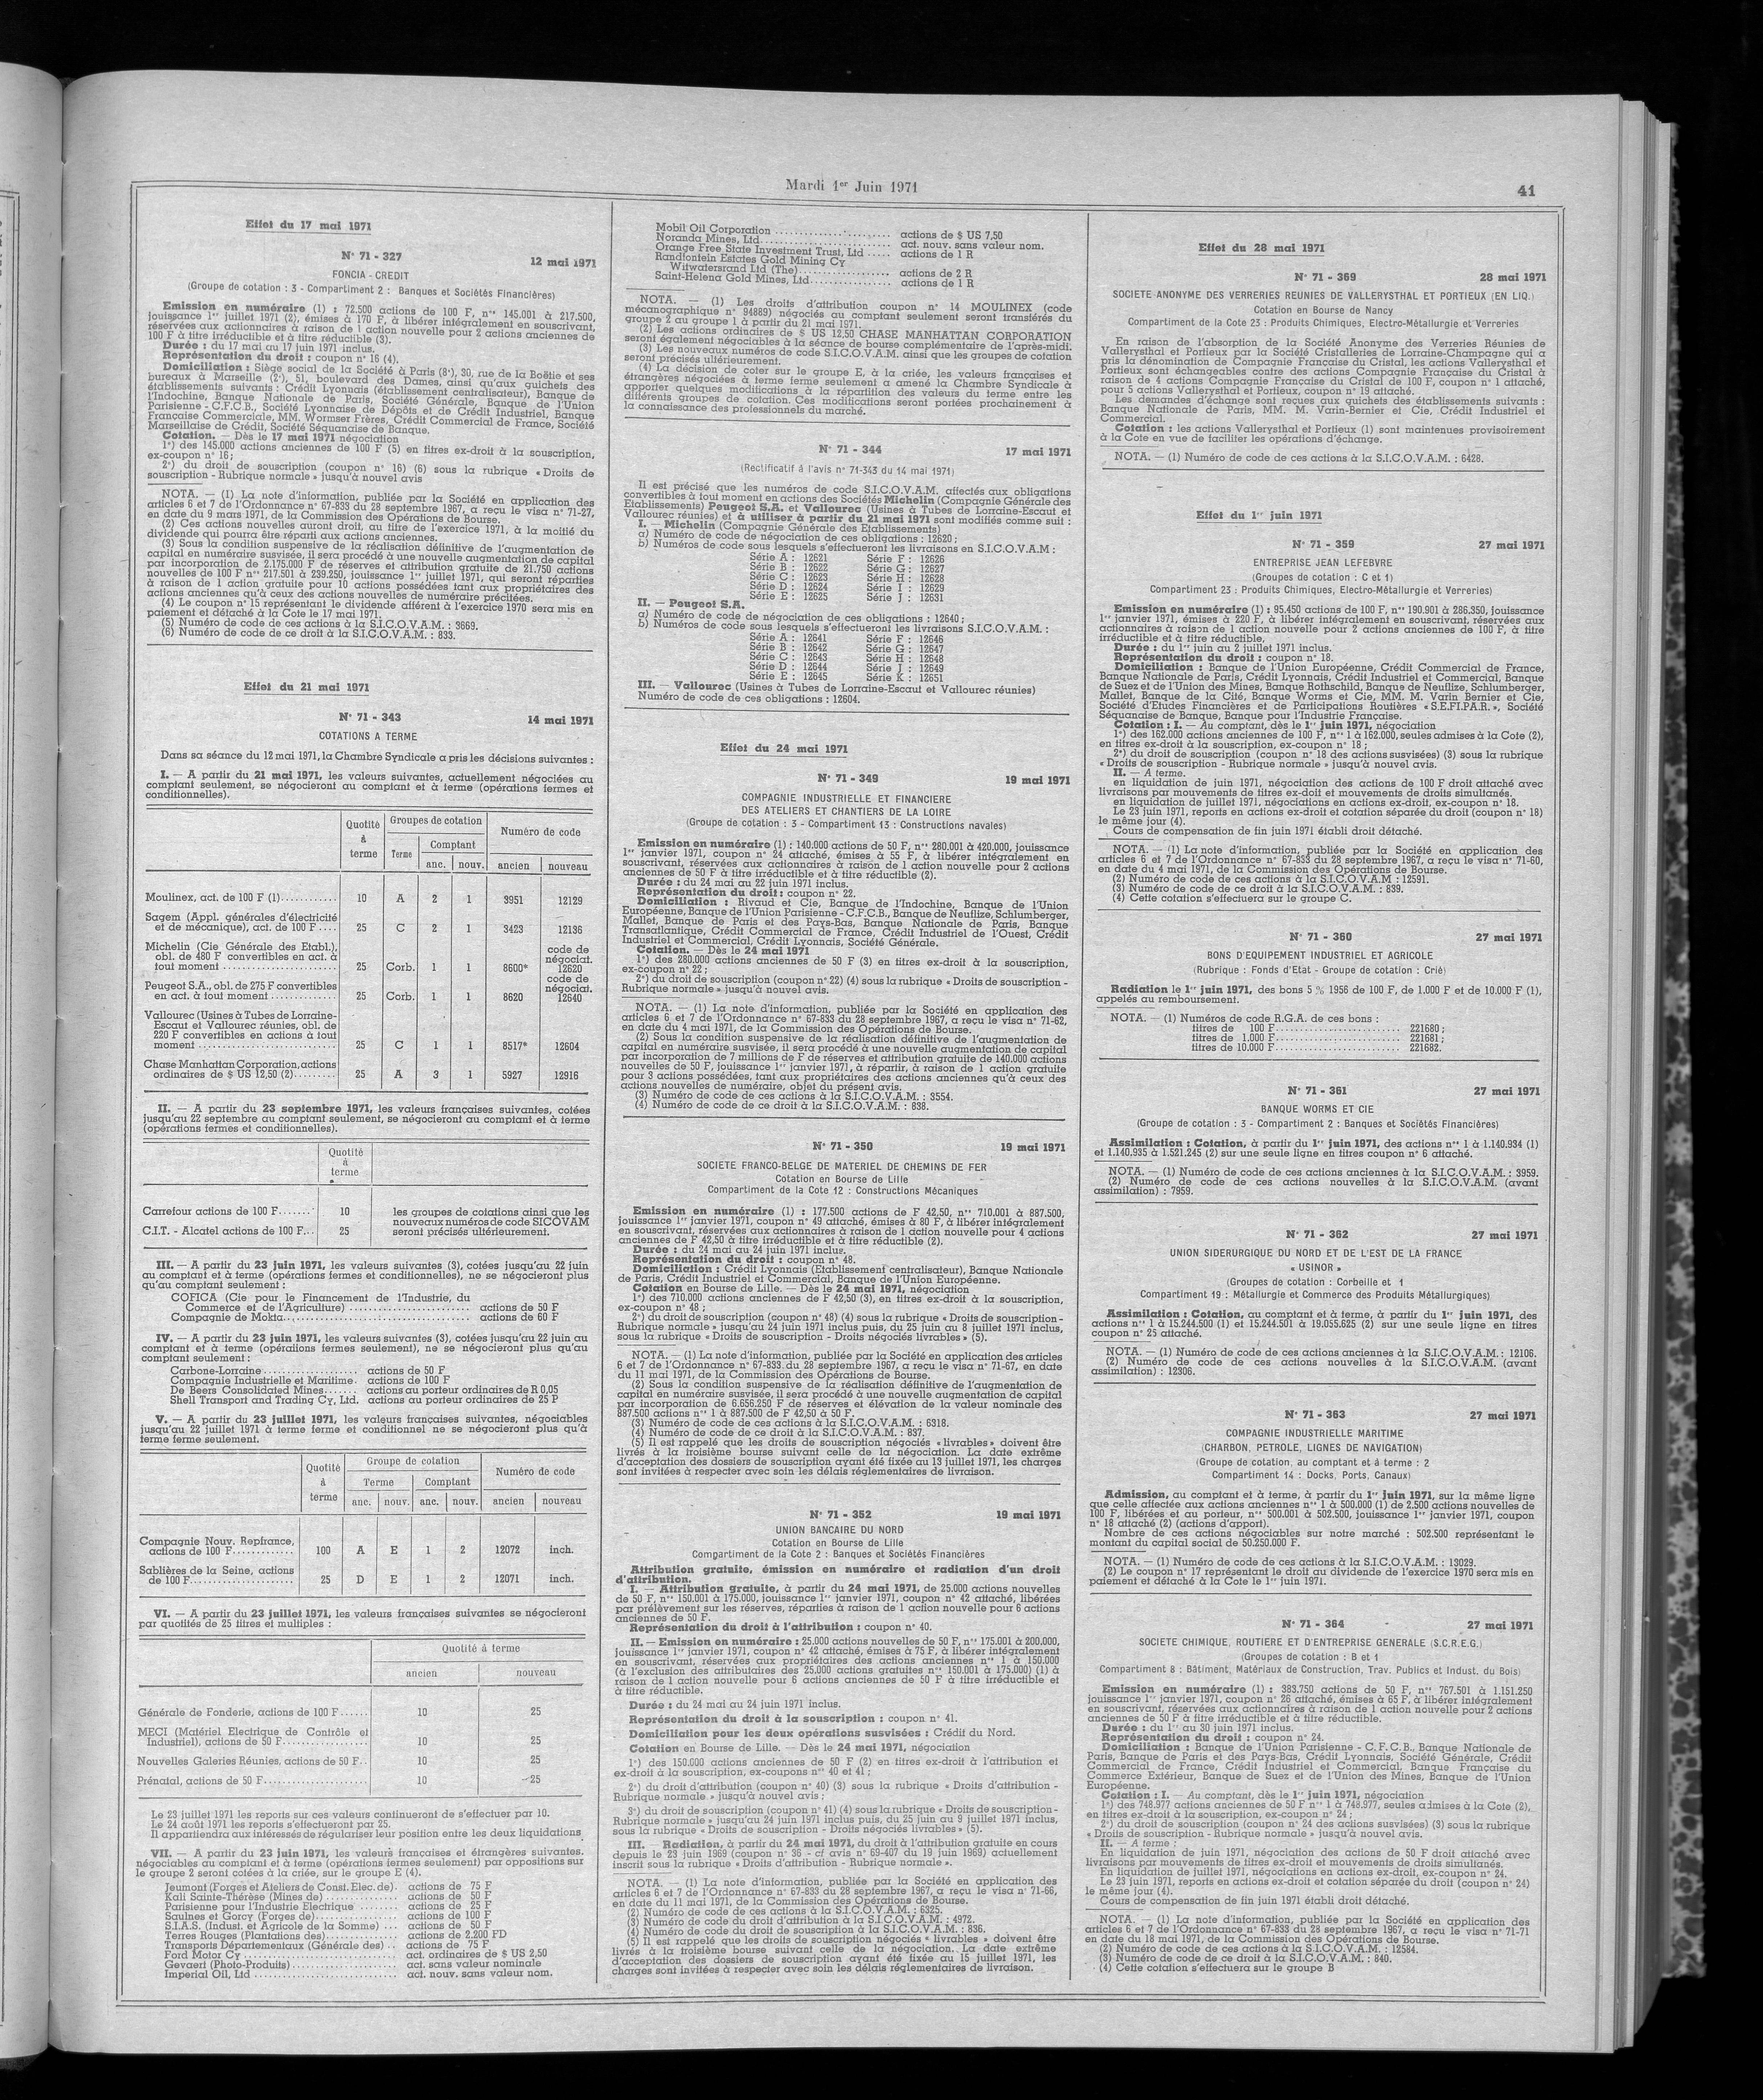 Mardi 1er Juin 1971
41
Effet du 17 mai 1971
N° 71 - 327
12 mai 1971
FONCIA - CREDIT
(Groupe de cotation : 3 - Compartiment 2 : Banques et Sociétés Financières)
Emission en numéraire (1) : 72.500 actions de 100 F, nos 145.001 à 217.500,
jouissance 1er juillet 1971 (2), émises à 170 F, à libérer intégralement en souscrivant,
réservées aux actionnaires à raison de 1 action nouvelle pour 2 actions anciennes de
100 F à titre irréductible et à titre réductible (3).
Durée : du 17 mai au 17 juin 1971 inclus.
Représentation du droit : coupon n° 16 (4).
Domiciliation : Siège social de la Société à Paris (8e), 30, rue de la Boëtie et ses
bureaux à Marseille (2e), 51, boulevard des Dames, ainsi qu'aux guichets des
établissements suivants : Crédit Lyonnais (établissement centralisateur), Banque de
l'Indochine, Banque Nationale de Paris, Société Générale, Banque de l'Union
Parisienne - C.F.C.B., Société Lyonnaise de Dépôts et de Crédit Industriel, Banque
Française Commerciale, MM. Wormser Frères, Crédit Commercial de France, Société
Marseillaise de Crédit, Société Séquanaise de Banque.
Cotation. — Dès le 17 mai 1971 négociation
1°) des 145.000 actions anciennes de 100 F (5) en titres ex-droit à la souscription,
ex-coupon n° 16 ;
2°) du droit de souscription (coupon n° 16) (6) sous la rubrique « Droits de
souscription - Rubrique normale » jusqu'à nouvel avis
NOTA. — (1) La note d'information, publiée par la Société en application des
articles 6 et 7 de l'Ordonnance n° 67-833 du 28 septembre 1967, a reçu le visa n° 71-27,
en date du 9 mars 1971, de la Commission des Opérations de Bourse.
(2) Ces actions nouvelles auront droit, au titre de l'exercice 1971, à la moitié du
dividende qui pourra être réparti aux actions anciennes.
(3) Sous la condition suspensive de la réalisation définitive de l'augmentation de
capital en numéraire susvisée, il sera procédé à une nouvelle augmentation de capital
par incorporation de 2.175.000 F de réserves et attribution gratuite de 21.750 actions
nouvelles de 100 F nos 217.501 à 239.250, jouissance 1er juillet 1971, qui seront réparties
à raison de 1 action gratuite pour 10 actions possédées tant aux propriétaires des
actions anciennes qu'à ceux des actions nouvelles de numéraire précitées.
(4) Le coupon n° 15 représentant le dividende afférent à l'exercice 1970 sera mis en
paiement et détaché à la Cote le 17 mai 1971.
(5) Numéro de code de ces actions à la S.I.C.O.V.A.M. : 3669.
(6) Numéro de code de ce droit à la S.I.C.O.V.A.M. : 833.
Effet du 21 mai 1971
N° 71 - 343
14 mai 1971
COTATIONS A TERME
Dans sa séance du 12 mai 1971, la Chambre Syndicale a pris les décisions suivantes :
I. — A partir du 21 mai 1971, les valeurs suivantes, actuellement négociées au
comptant seulement, se négocieront au comptant et à terme (opérations fermes et
conditionnelles).
Quotité à terme | Groupes de cotation | Numéro de code
Terme | Comptant
anc. | nouv. | ancien | nouveau
Moulinex, act. de 100 F (1)............ 10 A 2 1 3951 12129
Sagem (Appl. générales d'électricité
et de mécanique), act. de 100 F.... 25 C 2 1 3423 12136
Michelin (Cie Générale des Etabl.),
obl. de 480 F convertibles en act. à
tout moment ....................... 25 Corb. 1 1 8600* code de négociat. 12620
Peugeot S.A., obl. de 275 F convertibles
en act. à tout moment ............. 25 Corb. 1 1 8620 code de négociat. 12640
Vallourec (Usines à Tubes de Lorraine-
Escaut et Vallourec réunies, obl. de
220 F convertibles en actions à tout
moment ............................ 25 C 1 1 8517* 12604
Chase Manhattan Corporation, actions
ordinaires de $ US 12,50 (2)......... 25 A 3 1 5927 12916
II. — A partir du 23 septembre 1971, les valeurs françaises suivantes, cotées
jusqu'au 22 septembre au comptant seulement, se négocieront au comptant et à terme
(opérations fermes et conditionnelles).
Quotité
à
terme
Carrefour actions de 100 F....... 10 les groupes de cotations ainsi que les
nouveaux numéros de code SICOVAM
C.I.T. - Alcatel actions de 100 F... 25 seront précisés ultérieurement.
III. — A partir du 23 juin 1971, les valeurs suivantes (3), cotées jusqu'au 22 juin
au comptant et à terme (opérations fermes et conditionnelles), ne se négocieront plus
qu'au comptant seulement :
COFICA (Cie pour le Financement de l'Industrie, du
Commerce et de l'Agriculture) ........................ actions de 50 F
Compagnie de Mokta...................................... actions de 60 F
IV. — A partir du 23 juin 1971, les valeurs suivantes (3), cotées jusqu'au 22 juin au
comptant et à terme (opérations fermes seulement), ne se négocieront plus qu'au
comptant seulement :
Carbone-Lorraine .................. actions de 50 F
Compagnie Industrielle et Maritime. actions de 100 F
De Beers Consolidated Mines....... actions au porteur ordinaires de R 0,05
Shell Transport and Trading Cy, Ltd. actions au porteur ordinaires de 25 P
V. — A partir du 23 juillet 1971, les valeurs françaises suivantes, négociables
jusqu'au 22 juillet 1971 à terme ferme et conditionnel ne se négocieront plus qu'à
terme ferme seulement.
Quotité à terme | Groupe de cotation | Numéro de code
Terme | Comptant
anc. | nouv. | anc. | nouv. | ancien | nouveau
Compagnie Nouv. Repfrance,
actions de 100 F............. 100 A E 1 2 12072 inch.
Sablières de la Seine, actions
de 100 F..................... 25 D E 1 2 12071 inch.
VI. — A partir du 23 juillet 1971, les valeurs françaises suivantes se négocieront
par quotités de 25 titres et multiples :
Quotité à terme
ancien | nouveau
Générale de Fonderie, actions de 100 F...... 10 25
MECI (Matériel Electrique de Contrôle et
Industriel), actions de 50 F................. 10 25
Nouvelles Galeries Réunies, actions de 50 F.. 10 25
Prénatal, actions de 50 F..................... 10 25
Le 23 juillet 1971 les reports sur ces valeurs continueront de s'effectuer par 10.
Le 24 août 1971 les reports s'effectueront par 25.
Il appartiendra aux intéressés de régulariser leur position entre les deux liquidations.
VII. — A partir du 23 juin 1971, les valeurs françaises et étrangères suivantes.
négociables au comptant et à terme (opérations fermes seulement) par oppositions sur
le groupe 2 seront cotées à la criée, sur le groupe E (4).
Jeumont (Forges et Ateliers de Const. Elec. de). actions de 75 F
Kali Sainte-Thérèse (Mines de) ............... actions de 50 F
Parisienne pour l'Industrie Electrique ........ actions de 25 F
Saulnes et Gorcy (Forges de)................. actions de 100 F
S.I.A.S. (Indust. et Agricole de la Somme) ... actions de 50 F
Terres Rouges (Plantations des)............... actions de 2.200 FD
Transports Départementaux (Générale des) .. actions de 75 F
Ford Motor Cy ............................... act. ordinaires de $ US 2,50
Gevaert (Photo-Produits) ..................... act. sans valeur nominale
Imperial Oil, Ltd ............................. act. nouv. sans valeur nom.
Mobil Oil Corporation ........................ actions de $ US 7,50
Noranda Mines, Ltd........................... act. nouv. sans valeur nom.
Orange Free State Investment Trust, Ltd ..... actions de 1 R
Randfontein Estates Gold Mining Cy
Witwatersrand Ltd (The)................... actions de 2 R
Saint-Helena Gold Mines, Ltd................. actions de 1 R
NOTA. — (1) Les droits d'attribution coupon n° 14 MOULINEX (code
mécanographique n° 94889) négociés au comptant seulement seront transférés du
groupe 2 au groupe 1 à partir du 21 mai 1971.
(2) Les actions ordinaires de $ US 12,50 CHASE MANHATTAN CORPORATION
seront également négociables à la séance de bourse complémentaire de l'après-midi.
(3) Les nouveaux numéros de code S.I.C.O.V.A.M. ainsi que les groupes de cotation
seront précisés ultérieurement.
(4) La décision de coter sur le groupe E, à la criée, les valeurs françaises et
étrangères négociées à terme ferme seulement a amené la Chambre Syndicale à
apporter quelques modifications à la répartition des valeurs du terme entre les
différents groupes de cotation. Ces modifications seront portées prochainement à
la connaissance des professionnels du marché.
N° 71 - 344
17 mai 1971
(Rectificatif à l'avis n° 71-343 du 14 mai 1971)
Il est précisé que les numéros de code S.I.C.O.V.A.M. affectés aux obligations
convertibles à tout moment en actions des Sociétés Michelin (Compagnie Générale des
Etablissements) Peugeot S.A. et Vallourec (Usines à Tubes de Lorraine-Escaut et
Vallourec réunies) et à utiliser à partir du 21 mai 1971 sont modifiés comme suit :
I. — Michelin (Compagnie Générale des Etablissements)
a) Numéro de code de négociation de ces obligations : 12620 ;
b) Numéros de code sous lesquels s'effectueront les livraisons en S.I.C.O.V.A.M :
Série A : 12621 Série F : 12626
Série B : 12622 Série G : 12627
Série C : 12623 Série H : 12628
Série D : 12624 Série I : 12629
Série E : 12625 Série J : 12631
II. — Peugeot S.A.
a) Numéro de code de négociation de ces obligations : 12640 ;
b) Numéros de code sous lesquels s'effectueront les livraisons S.I.C.O.V.A.M. :
Série A : 12641 Série F : 12646
Série B : 12642 Série G : 12647
Série C : 12643 Série H : 12648
Série D : 12644 Série J : 12649
Série E : 12645 Série K : 12651
III. — Vallourec (Usines à Tubes de Lorraine-Escaut et Vallourec réunies)
Numéro de code de ces obligations : 12604.
Effet du 24 mai 1971
N° 71 - 349
19 mai 1971
COMPAGNIE INDUSTRIELLE ET FINANCIERE
DES ATELIERS ET CHANTIERS DE LA LOIRE
(Groupe de cotation : 3 - Compartiment 13 : Constructions navales)
Emission en numéraire (1) : 140.000 actions de 50 F, nos 280.001 à 420.000, jouissance
1er janvier 1971, coupon n° 24 attaché, émises à 55 F, à libérer intégralement en
souscrivant, réservées aux actionnaires à raison de 1 action nouvelle pour 2 actions
anciennes de 50 F à titre irréductible et à titre réductible (2).
Durée : du 24 mai au 22 juin 1971 inclus.
Représentation du droit : coupon n° 22.
Domiciliation : Rivaud et Cie, Banque de l'Indochine, Banque de l'Union
Européenne, Banque de l'Union Parisienne - C.F.C.B., Banque de Neuflize, Schlumberger,
Mallet, Banque de Paris et des Pays-Bas, Banque Nationale de Paris, Banque
Transatlantique, Crédit Commercial de France, Crédit Industriel de l'Ouest, Crédit
Industriel et Commercial, Crédit Lyonnais, Société Générale.
Cotation. — Dès le 24 mai 1971
1°) des 280.000 actions anciennes de 50 F (3) en titres ex-droit à la souscription,
ex-coupon n° 22 ;
2°) du droit de souscription (coupon n° 22) (4) sous la rubrique « Droits de souscription -
Rubrique normale » jusqu'à nouvel avis.
NOTA. — (1) La note d'information, publiée par la Société en application des
articles 6 et 7 de l'Ordonnance n° 67-833 du 28 septembre 1967, a reçu le visa n° 71-62,
en date du 4 mai 1971, de la Commission des Opérations de Bourse.
(2) Sous la condition suspensive de la réalisation définitive de l'augmentation de
capital en numéraire susvisée, il sera procédé à une nouvelle augmentation de capital
par incorporation de 7 millions de F de réserves et attribution gratuite de 140.000 actions
nouvelles de 50 F, jouissance 1er janvier 1971, à répartir, à raison de 1 action gratuite
pour 3 actions possédées, tant aux propriétaires des actions anciennes qu'à ceux des
actions nouvelles de numéraire, objet du présent avis.
(3) Numéro de code de ces actions à la S.I.C.O.V.A.M. : 3554.
(4) Numéro de code de ce droit à la S.I.C.O.V.A.M. : 838.
N° 71 - 350
19 mai 1971
SOCIETE FRANCO-BELGE DE MATERIEL DE CHEMINS DE FER
Cotation en Bourse de Lille
Compartiment de la Cote 12 : Constructions Mécaniques
Emission en numéraire (1) : 177.500 actions de F 42,50, nos 710.001 à 887.500,
jouissance 1er janvier 1971, coupon n° 49 attaché, émises à 80 F, à libérer intégralement
en souscrivant, réservées aux actionnaires à raison de 1 action nouvelle pour 4 actions
anciennes de F 42,50 à titre irréductible et à titre réductible (2).
Durée : du 24 mai au 24 juin 1971 inclus.
Représentation du droit : coupon n° 48.
Domiciliation : Crédit Lyonnais (Etablissement centralisateur), Banque Nationale
de Paris, Crédit Industriel et Commercial, Banque de l'Union Européenne.
Cotation en Bourse de Lille. — Dès le 24 mai 1971, négociation
1°) des 710.000 actions anciennes de F 42,50 (3), en titres ex-droit à la souscription,
ex-coupon n° 48 ;
2°) du droit de souscription (coupon n° 48) (4) sous la rubrique « Droits de souscription -
Rubrique normale » jusqu'au 24 juin 1971 inclus puis, du 25 juin au 8 juillet 1971 inclus,
sous la rubrique « Droits de souscription - Droits négociés livrables » (5).
NOTA. — (1) La note d'information, publiée par la Société en application des articles
6 et 7 de l'Ordonnance n° 67-833 du 28 septembre 1967, a reçu le visa n° 71-67, en date
du 11 mai 1971, de la Commission des Opérations de Bourse.
(2) Sous la condition suspensive de la réalisation définitive de l'augmentation de
capital en numéraire susvisée, il sera procédé à une nouvelle augmentation de capital
par incorporation de 6.656.250 F de réserves et élévation de la valeur nominale des
887.500 actions nos 1 à 887.500 de F 42,50 à 50 F.
(3) Numéro de code de ces actions à la S.I.C.O.V.A.M. : 6318.
(4) Numéro de code de ce droit à la S.I.C.O.V.A.M. : 837.
(5) Il est rappelé que les droits de souscription négociés « livrables » doivent être
livrés à la troisième bourse suivant celle de la négociation. La date extrême
d'acceptation des dossiers de souscription ayant été fixée au 13 juillet 1971, les charges
sont invitées à respecter avec soin les délais réglementaires de livraison.
N° 71 - 352
19 mai 1971
UNION BANCAIRE DU NORD
Cotation en Bourse de Lille
Compartiment de la Cote 2 : Banques et Sociétés Financières
Attribution gratuite, émission en numéraire et radiation d'un droit
d'attribution.
I. — Attribution gratuite, à partir du 24 mai 1971, de 25.000 actions nouvelles
de 50 F, nos 150.001 à 175.000, jouissance 1er janvier 1971, coupon n° 42 attaché, libérées
par prélèvement sur les réserves, réparties à raison de 1 action nouvelle pour 6 actions
anciennes de 50 F.
Représentation du droit à l'attribution : coupon n° 40.
II. — Emission en numéraire : 25.000 actions nouvelles de 50 F, nos 175.001 à 200.000,
jouissance 1er janvier 1971, coupon n° 42 attaché, émises à 75 F, à libérer intégralement
en souscrivant, réservées aux propriétaires des actions anciennes nos 1 à 150.000
(à l'exclusion des attributaires des 25.000 actions gratuites nos 150.001 à 175.000) (1) à
raison de 1 action nouvelle pour 6 actions anciennes de 50 F à titre irréductible et
à titre réductible.
Durée : du 24 mai au 24 juin 1971 inclus.
Représentation du droit à la souscription : coupon n° 41.
Domiciliation pour les deux opérations susvisées : Crédit du Nord.
Cotation en Bourse de Lille. — Dès le 24 mai 1971, négociation
1°) des 150.000 actions anciennes de 50 F (2) en titres ex-droit à l'attribution et
ex-droit à la souscription, ex-coupons nos 40 et 41 ;
2°) du droit d'attribution (coupon n° 40) (3) sous la rubrique « Droits d'attribution -
Rubrique normale » jusqu'à nouvel avis ;
3°) du droit de souscription (coupon n° 41) (4) sous la rubrique « Droits de souscription -
Rubrique normale » jusqu'au 24 juin 1971 inclus puis, du 25 juin au 9 juillet 1971 inclus,
sous la rubrique « Droits de souscription - Droits négociés livrables » (5).
III. — Radiation, à partir du 24 mai 1971, du droit à l'attribution gratuite en cours
depuis le 23 juin 1969 (coupon n° 36 - cf avis n° 69-407 du 19 juin 1969) actuellement
inscrit sous la rubrique « Droits d'attribution - Rubrique normale ».
NOTA. — (1) La note d'information, publiée par la Société en application des
articles 6 et 7 de l'Ordonnance n° 67-833 du 28 septembre 1967, a reçu le visa n° 71-66,
en date du 11 mai 1971, de la Commission des Opérations de Bourse.
(2) Numéro de code de ces actions à la S.I.C.O.V.A.M. : 6325.
(3) Numéro de code du droit d'attribution à la S.I.C.O.V.A.M. : 4972.
(4) Numéro de code du droit de souscription à la S.I.C.O.V.A.M. : 836.
(5) Il est rappelé que les droits de souscription négociés « livrables » doivent être
livrés à la troisième bourse suivant celle de la négociation. La date extrême
d'acceptation des dossiers de souscription ayant été fixée au 15 juillet 1971, les
charges sont invitées à respecter avec soin les délais réglementaires de livraison.
Effet du 28 mai 1971
N° 71 - 369
28 mai 1971
SOCIETE ANONYME DES VERRERIES REUNIES DE VALLERYSTHAL ET PORTIEUX (EN LIQ.)
Cotation en Bourse de Nancy
Compartiment de la Cote 23 : Produits Chimiques, Electro-Métallurgie et Verreries
En raison de l'absorption de la Société Anonyme des Verreries Réunies de
Vallerysthal et Portieux par la Société Cristalleries de Lorraine-Champagne qui a
pris la dénomination de Compagnie Francaise du Cristal, les actions Vallerysthal et
Portieux sont échangeables contre des actions Compagnie Française du Cristal à
raison de 4 actions Compagnie Française du Cristal de 100 F, coupon n° 1 attaché,
pour 5 actions Vallerysthal et Portieux, coupon n° 19 attaché.
Les demandes d'échange sont reçues aux guichets des établissements suivants :
Banque Nationale de Paris, MM. M. Varin-Bernier et Cie, Crédit Industriel et
Commercial.
Cotation : les actions Vallerysthal et Portieux (1) sont maintenues provisoirement
à la Cote en vue de faciliter les opérations d'échange.
NOTA. — (1) Numéro de code de ces actions à la S.I.C.O.V.A.M. : 6428.
Effet du 1er juin 1971
N° 71 - 359
27 mai 1971
ENTREPRISE JEAN LEFEBVRE
(Groupes de cotation : C et 1)
Compartiment 23 : Produits Chimiques, Electro-Métallurgie et Verreries)
Emission en numéraire (1) : 95.450 actions de 100 F, nos 190.901 à 286.350, jouissance
1er janvier 1971, émises à 220 F, à libérer intégralement en souscrivant, réservées aux
actionnaires à raison de 1 action nouvelle pour 2 actions anciennes de 100 F, à titre
irréductible et à titre réductible.
Durée : du 1er juin au 2 juillet 1971 inclus.
Représentation du droit : coupon n° 18.
Domiciliation : Banque de l'Union Européenne, Crédit Commercial de France,
Banque Nationale de Paris, Crédit Lyonnais, Crédit Industriel et Commercial, Banque
de Suez et de l'Union des Mines, Banque Rothschild, Banque de Neuflize, Schlumberger,
Mallet, Banque de la Cité, Banque Worms et Cie, MM. M. Varin Bernier et Cie,
Société d'Etudes Financières et de Participations Routières « S.E.FI.PA.R. », Société
Séquanaise de Banque, Banque pour l'Industrie Française.
Cotation : I. — Au comptant, dès le 1er juin 1971, négociation
1°) des 162.000 actions anciennes de 100 F, nos 1 à 162.000, seules admises à la Cote (2),
en titres ex-droit à la souscription, ex-coupon n° 18 ;
2°) du droit de souscription (coupon n° 18 des actions susvisées) (3) sous la rubrique
« Droits de souscription - Rubrique normale » jusqu'à nouvel avis.
II. — A terme.
en liquidation de juin 1971, négociation des actions de 100 F droit attaché avec
livraisons par mouvements de titres ex-doit et mouvements de droits simultanés.
en liquidation de juillet 1971, négociations en actions ex-droit, ex-coupon n° 18.
Le 23 juin 1971, reports en actions ex-droit et cotation séparée du droit (coupon n° 18)
le même jour (4).
Cours de compensation de fin juin 1971 établi droit détaché.
NOTA. — (1) La note d'information, publiée par la Société en application des
articles 6 et 7 de l'Ordonnance n° 67-833 du 28 septembre 1967, a reçu le visa n° 71-60,
en date du 4 mai 1971, de la Commission des Opérations de Bourse.
(2) Numéro de code de ces actions à la S.I.C.O.V.A.M : 12591.
(3) Numéro de code de ce droit à la S.I.C.O.V.A.M. : 839.
(4) Cette cotation s'effectuera sur le groupe C.
N° 71 - 360
27 mai 1971
BONS D'EQUIPEMENT INDUSTRIEL ET AGRICOLE
(Rubrique : Fonds d'Etat - Groupe de cotation : Crié)
Radiation le 1er juin 1971, des bons 5 % 1956 de 100 F, de 1.000 F et de 10.000 F (1),
appelés au remboursement.
NOTA. — (1) Numéros de code R.G.A. de ces bons :
titres de 100 F......................... 221680 ;
titres de 1.000 F......................... 221681 ;
titres de 10.000 F......................... 221682.
N° 71 - 361
27 mai 1971
BANQUE WORMS ET CIE
(Groupe de cotation : 3 - Compartiment 2 : Banques et Sociétés Financières)
Assimilation : Cotation, à partir du 1er juin 1971, des actions nos 1 à 1.140.934 (1)
et 1.140.935 à 1.521.245 (2) sur une seule ligne en titres coupon n° 6 attaché.
NOTA. — (1) Numéro de code de ces actions anciennes à la S.I.C.O.V.A.M. : 3959.
(2) Numéro de code de ces actions nouvelles à la S.I.C.O.V.A.M. (avant
assimilation) : 7959.
N° 71 - 362
27 mai 1971
UNION SIDERURGIQUE DU NORD ET DE L'EST DE LA FRANCE
« USINOR »
(Groupes de cotation : Corbeille et 1
Compartiment 19 : Métallurgie et Commerce des Produits Métallurgiques)
Assimilation : Cotation, au comptant et à terme, à partir du 1er juin 1971, des
actions nos 1 à 15.244.500 (1) et 15.244.501 à 19.055.625 (2) sur une seule ligne en titres
coupon n° 25 attaché.
NOTA. — (1) Numéro de code de ces actions anciennes à la S.I.C.O.V.A.M. : 12106.
(2) Numéro de code de ces actions nouvelles à la S.I.C.O.V.A.M. (avant
assimilation) : 12306.
N° 71 - 363
27 mai 1971
COMPAGNIE INDUSTRIELLE MARITIME
(CHARBON, PETROLE, LIGNES DE NAVIGATION)
(Groupe de cotation, au comptant et à terme : 2
Compartiment 14 : Docks, Ports, Canaux)
Admission, au comptant et à terme, à partir du 1er juin 1971, sur la même ligne
que celle affectée aux actions anciennes nos 1 à 500.000 (1) de 2.500 actions nouvelles de
100 F, libérées et au porteur, nos 500.001 à 502.500, jouissance 1er janvier 1971, coupon
n° 18 attaché (2) (actions d'apport).
Nombre de ces actions négociables sur notre marché : 502.500 représentant le
montant du capital social de 50.250.000 F.
NOTA. — (1) Numéro de code de ces actions à la S.I.C.O.V.A.M. : 13029.
(2) Le coupon n° 17 représentant le droit au dividende de l'exercice 1970 sera mis en
paiement et détaché à la Cote le 1er juin 1971.
N° 71 - 364
27 mai 1971
SOCIETE CHIMIQUE, ROUTIERE ET D'ENTREPRISE GENERALE (S.C.R.E.G.)
(Groupes de cotation : B et 1
Compartiment 8 : Bâtiment, Matériaux de Construction, Trav. Publics et Indust. du Bois)
Emission en numéraire (1) : 383.750 actions de 50 F, nos 767.501 à 1.151.250
jouissance 1er janvier 1971, coupon n° 26 attaché, émises à 65 F, à libérer intégralement
en souscrivant, réservées aux actionnaires à raison de 1 action nouvelle pour 2 actions
anciennes de 50 F à titre irréductible et à titre réductible.
Durée : du 1er au 30 juin 1971 inclus.
Représentation du droit : coupon n° 24.
Domiciliation : Banque de l'Union Parisienne - C.F.C.B., Banque Nationale de
Paris, Banque de Paris et des Pays-Bas, Crédit Lyonnais, Société Générale, Crédit
Commercial de France, Crédit Industriel et Commercial, Banque Française du
Commerce Extérieur, Banque de Suez et de l'Union des Mines, Banque de l'Union
Européenne.
Cotation : I. — Au comptant, dès le 1er juin 1971, négociation
1°) des 748.977 actions anciennes de 50 F nos 1 à 748.977, seules admises à la Cote (2),
en titres ex-droit à la souscription, ex-coupon n° 24 ;
2°) du droit de souscription (coupon n° 24 des actions susvisées) (3) sous la rubrique
« Droits de souscription - Rubrique normale » jusqu'à nouvel avis.
II. — A terme :
En liquidation de juin 1971, négociation des actions de 50 F droit attaché avec
livraisons par mouvements de titres ex-droit et mouvements de droits simultanés.
En liquidation de juillet 1971, négociations en actions ex-droit, ex-coupon n° 24.
Le 23 juin 1971, reports en actions ex-droit et cotation séparée du droit (coupon n° 24)
le même jour (4).
Cours de compensation de fin juin 1971 établi droit détaché.
NOTA. — (1) La note d'information, publiée par la Société en application des
articles 6 et 7 de l'Ordonnance n° 67-833 du 28 septembre 1967, a reçu le visa n° 71-71
en date du 18 mai 1971, de la Commission des Opérations de Bourse.
(2) Numéro de code de ces actions à la S.I.C.O.V.A.M. : 12584.
(3) Numéro de code de ce droit à la S.I.C.O.V.A.M. : 840.
(4) Cette cotation s'effectuera sur le groupe B